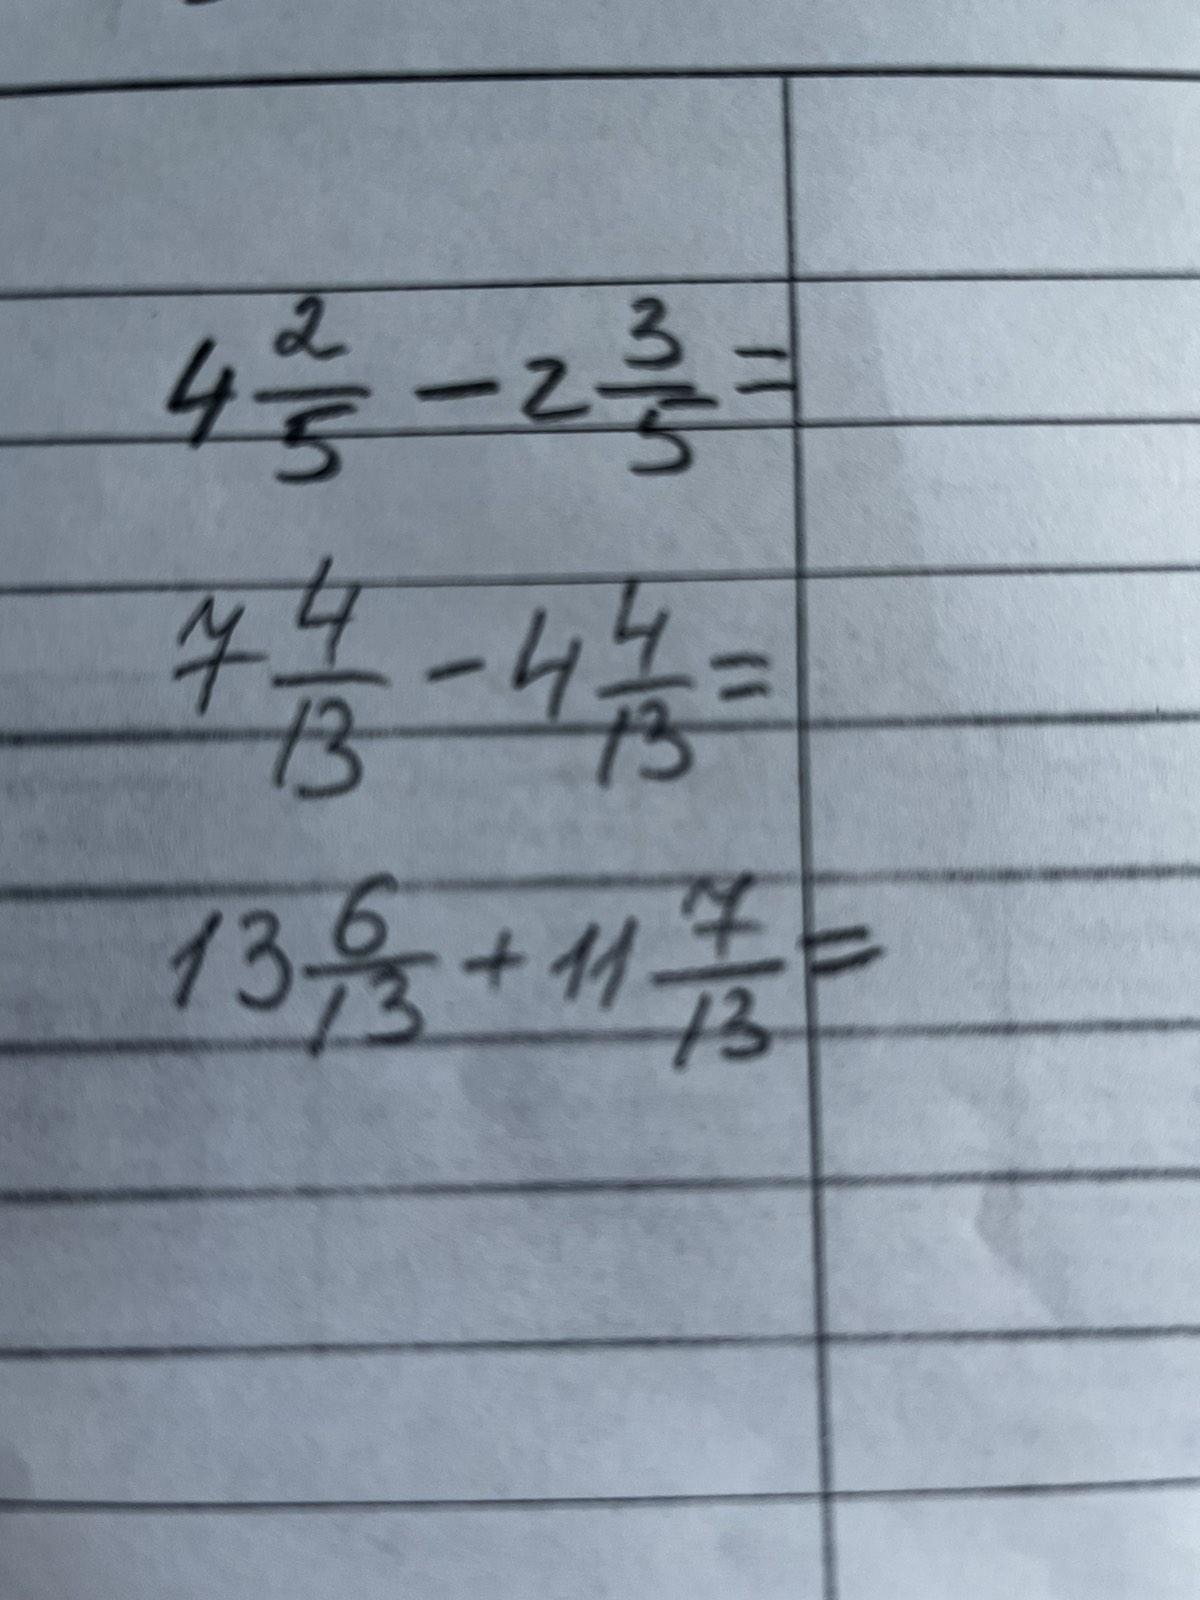 4 2/5 - 2 3/5 =
7 4/13 - 4 4/13 =
13 6/13 + 11 7/13 =